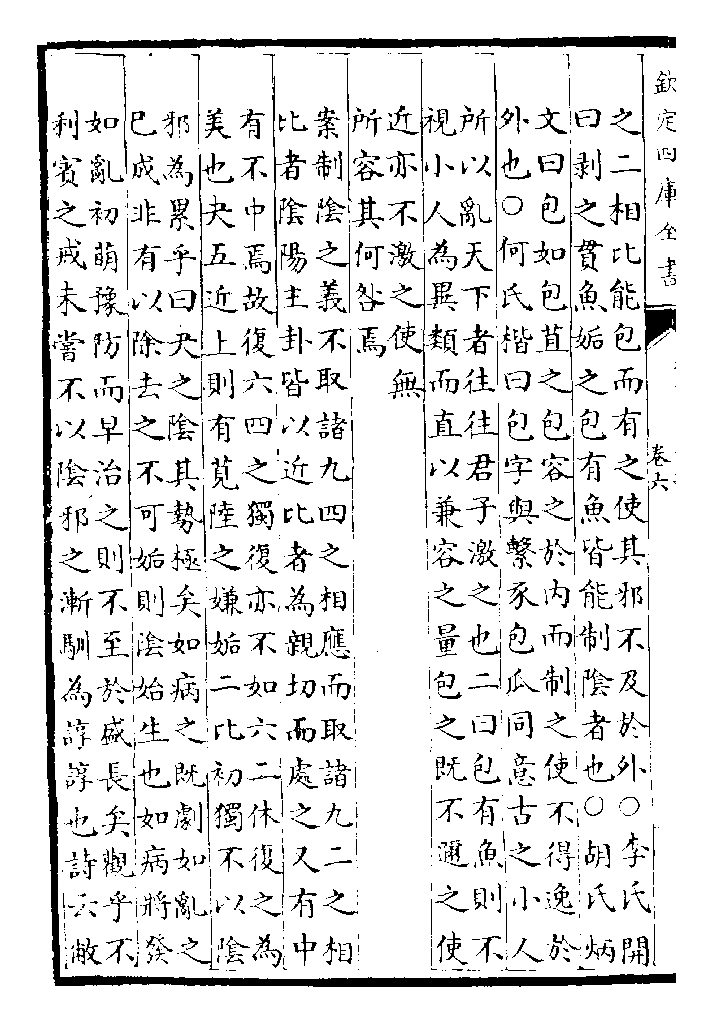 欽定四庫全書
卷六
之二相比能包而有之使其邪不及於外○李氏開
曰剥之貫魚姤之包有魚皆能制陰者也○胡氏炳
文曰包如包苴之包容之於内而制之使不得逸於
外也○何氏楷曰包字與繫豕包瓜同意古之小人
所以亂天下者往往君子激之也二曰包有魚則不
視小人為異類而直以兼容之量包之既不邇之使
近亦不激之使無
所容其何咎焉
案制陰之義不取諸九四之相應而取諸九二之相
比者陰陽主卦皆以近比者為親切而處之又有中
有不中焉故復六四之獨復亦不如六二休復之為
美也夬五近上則有莧陸之嫌姤二比初獨不以陰
邪為累乎曰夬之陰其勢極矣如病之既劇如亂之
已成非有以除去之不可姤則陰始生也如病將發
如亂初萌豫防而早治之則不至於盛長矣觀乎不
利賓之戒未嘗不以陰邪之漸馴為諄諄也詩云敝